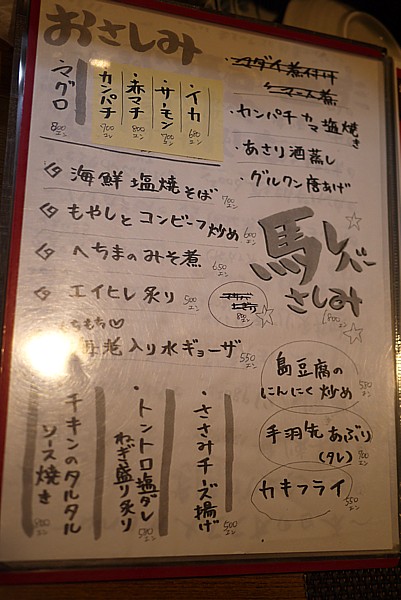 おさしみ
・マグロ
800エン
カンパチ
900エン
・赤マチ
800エン
・サーモン
700エン
・イカ
600エン
・マダイ煮付け
・カンパチカマ塩焼き
・あさり酒蒸し
・グルクン唐あげ
海鮮塩焼そば 700エン
もやしとコンビーフ炒め 600エン
へちまのみそ煮 650エン
エイヒレ炙り 500エン
馬レバー
さしみ
1,800エン
もちもち♡
海老入り水ギョーザ 550エン
島豆腐の
にんにく炒め 580エン
手羽先あぶり
(タレ)
カキフライ 550エン
・ささみチーズ揚げ
500エン
・トントロ塩ダレ
ねぎ盛り炙り
チキンのタルタル
ソース焼き